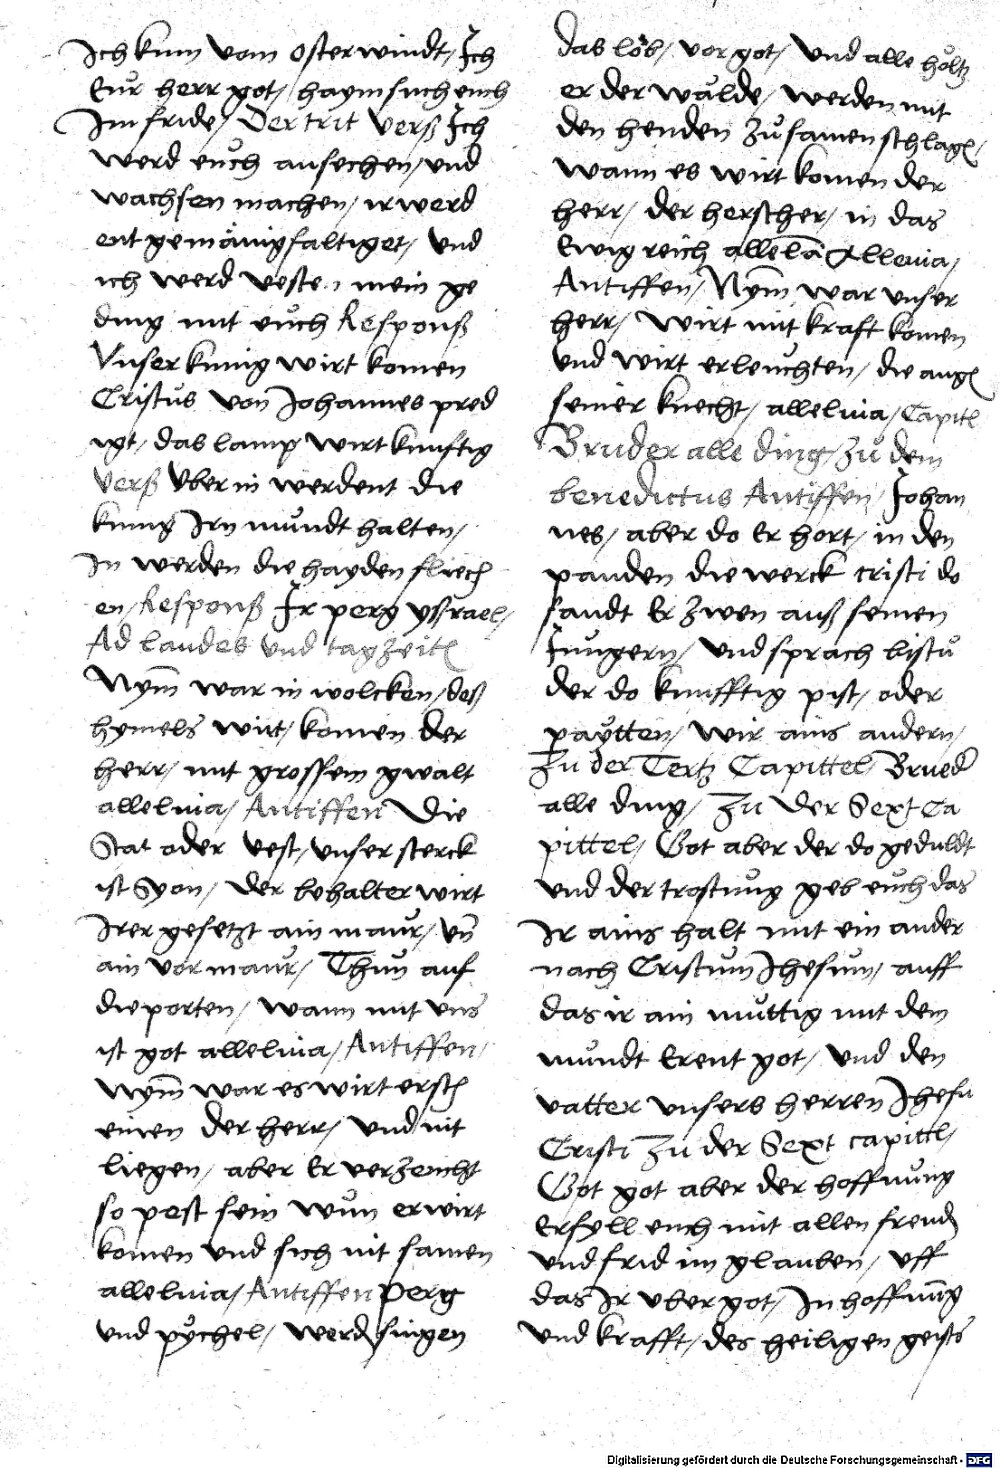 Ich kum vom osterwindt / Ich
Eur herr got / haymsuch euch
Im fride / Der trit verß Ich
werd euch ansechen / und
wachsen machen / ir werd
ent gemänigfaltiget / und
ich werd vesten mein ge
ding mit euch Responß
Unser kunig wirt komen
Cristus von Johannes pred
igt / das lamp wirt kunftig
Verß Uber in werdent die
kunig Irn mundt halten /
In werden die hayden flech
en / Responß Ir perg ysrael /
Ad laudes und tagzeit
Nym war in wolcken / deß
hymels wirt / komen der
herr / mit grossem gwalt
alleluia / Antiffen Die
Stat oder vest / unser sterck
ist Syon / der behalter wirt
Irer gesetzt ain maur / un
ain vor maur / Thun auf
die porten / wann mit uns
ist got alleluia / Antiffen /
Nym war es wirt ersch
einen der herr / und nit
liegen / aber Er verzeucht
so pest sein wun er wirt
komen und sich nit samen
alleluia / Antiffen Perg
und pychel / werd singen
das lob / vor got / und alle höltz
er der wälde / werden mit
den henden zu samen schlag /
wann es wirt komen der
herr / der herscher / in das
Ewig reich allela Alleuia /
Antiffen / Nym war unser
herr / wirt mit kraft komen
und wirt erleuchten / die aug
seiner knecht / alleluia / Capitl
Bruder alle ding / zu dem
benedictus Antiffen / Johan
nes / aber do Er hort / in den
panden die werck cristi do
sandt Er zwen auß seinen
Jungern / und sprach bistu
der do kunfftig pist / oder
paytten / wir ains andern /
Zu der Tertz Capittel / Brued
alle ding / Zu der Sext Ca
pittel / Got aber der do geduldt
und der trostung geb euch das
Ir ains halt mit ein ander
nach Cristum Jhesum / auff
das ir ain muttig mit dem
mundt Erent got / und den
vatter unsers herren Jhesu
Cristi Zu der Sext capittl /
Got got aber der hoffnung
erfyll euch mit allen freud
und frid im glauben / uff
das Ir uber got / In hoffnung
und krafft / des heiligen geists
Digitalisierung gefördert durch die Deutsche Forschungsgemeinschaft - DFG